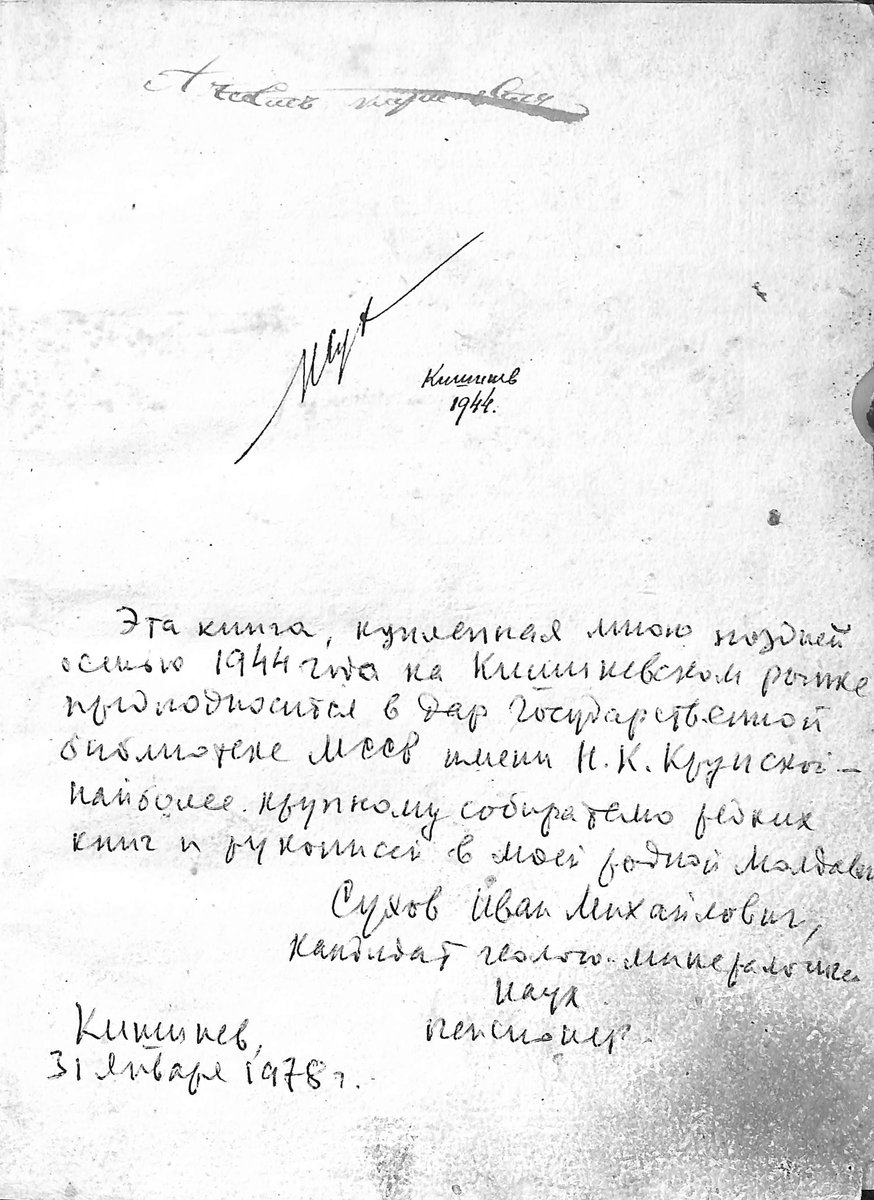 Кишинев
1944.
Эта книга, купленная мною поздней
осенью 1944 года на Кишиневском рынке
преподносится в дар Государственной
библиотеке МССР имени Н. К. Крупской –
наиболее крупному собирателю редких
книг и рукописей в моей родной Молдавии
Сухов Иван Михайлович,
кандидат геолого-минералогических
наук
пенсионер.
Кишинев,
31 января 1978 г.